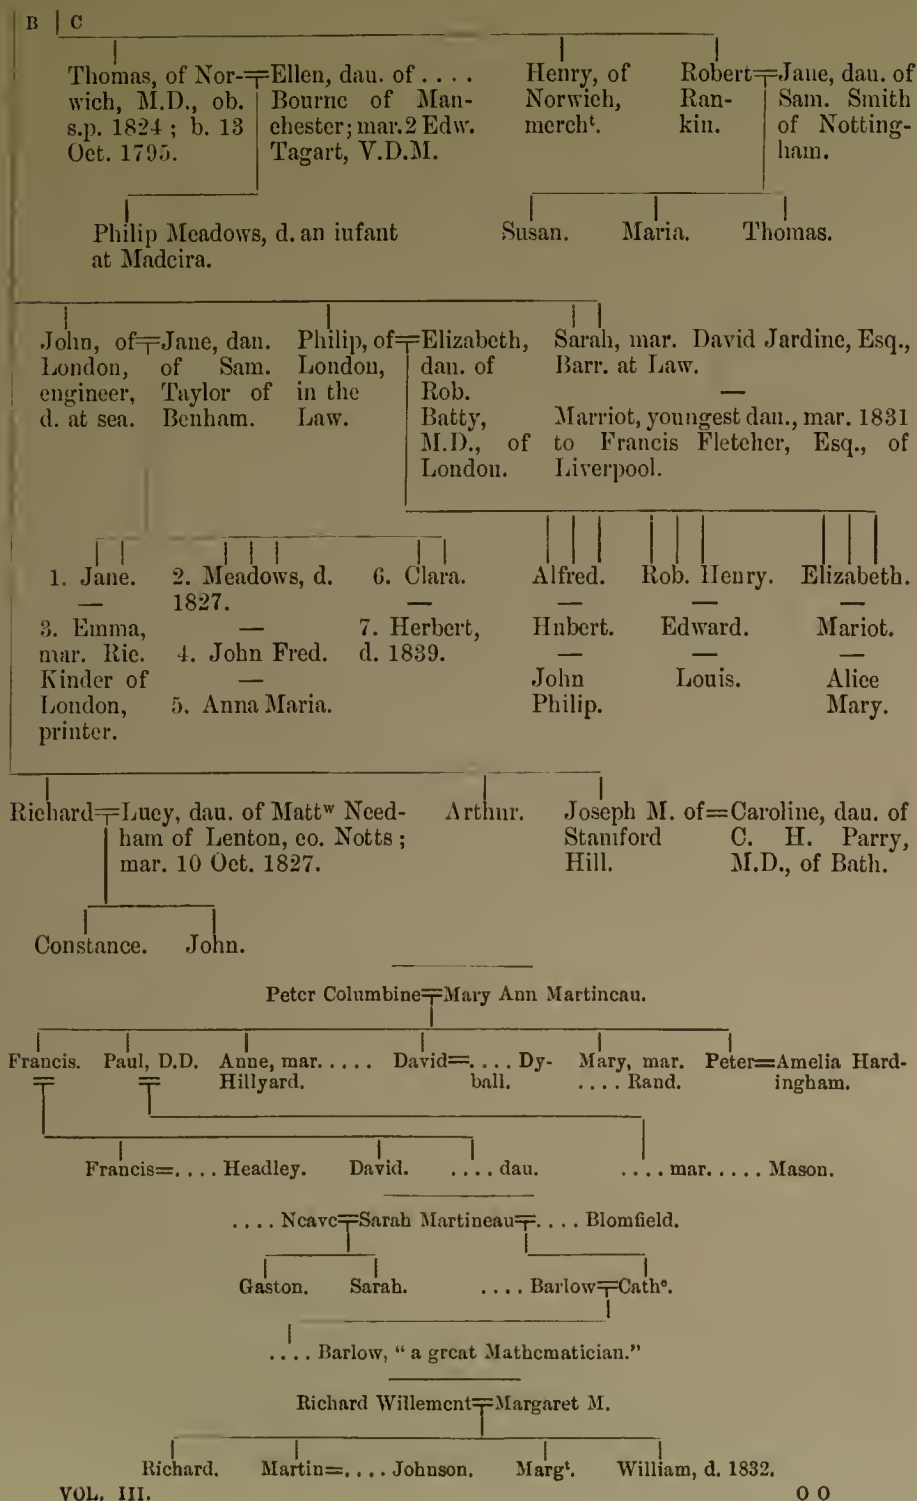 B | C
Thomas, of Nor-=Ellen, dau. of . . . .
wich, M.D., ob.
s.p. 1824 ; b. 13
Oct. 1795.
Bourne of Man-
chester; mar. 2 Edw.
Tagart, V.D.M.
Henry, of
Norwich,
mercht.
Robert=Jane, dau. of
Ran-
kin.
Sam. Smith
of Notting-
ham.
Philip Meadows, d. an infant
at Madeira.
Susan. Maria. Thomas.
John, of=Jane, dau.
London,
engineer,
d. at sea.
of Sam.
Taylor of
Benham.
Philip, of=Elizabeth,
London,
in the
Law.
dau. of
Rob.
Batty,
M.D., of
London.
Sarah, mar. David Jardine, Esq.,
Barr. at Law.
—
Marriot, youngest dau., mar. 1831
to Francis Fletcher, Esq., of
Liverpool.
1. Jane.
—
3. Emma,
mar. Ric.
Kinder of
London,
printer.
2. Meadows, d.
1827.
—
4. John Fred.
—
5. Anna Maria.
6. Clara.
—
7. Herbert,
d. 1839.
Alfred.
—
Hubert.
—
John
Philip.
Rob. Henry.
—
Edward.
—
Louis.
Elizabeth.
—
Mariot.
—
Alice
Mary.
Richard=Lucy, dau. of Mattw Need-
ham of Lenton, co. Notts ;
mar. 10 Oct. 1827.
Arthur.
Joseph M. of=Caroline, dau. of
Stamford
Hill.
C. H. Parry,
M.D., of Bath.
Constance. John.
Peter Columbine=Mary Ann Martineau.
Francis. Paul, D.D. Anne, mar. . . . .
Hillyard.
David=. . . . Dy-
ball.
Mary, mar.
. . . . Rand.
Peter=Amelia Hard-
ingham.
Francis=. . . . Headley. David. . . . . dau. . . . . mar. . . . . Mason.
. . . . Neave=Sarah Martineau=. . . . Blomfield.
Gaston. Sarah. . . . . Barlow=Cathe.
. . . . Barlow, “ a great Mathematician.”
Richard Willement=Margaret M.
Richard. Martin=. . . . Johnson. Margt. William, d. 1832.
VOL. III. O O